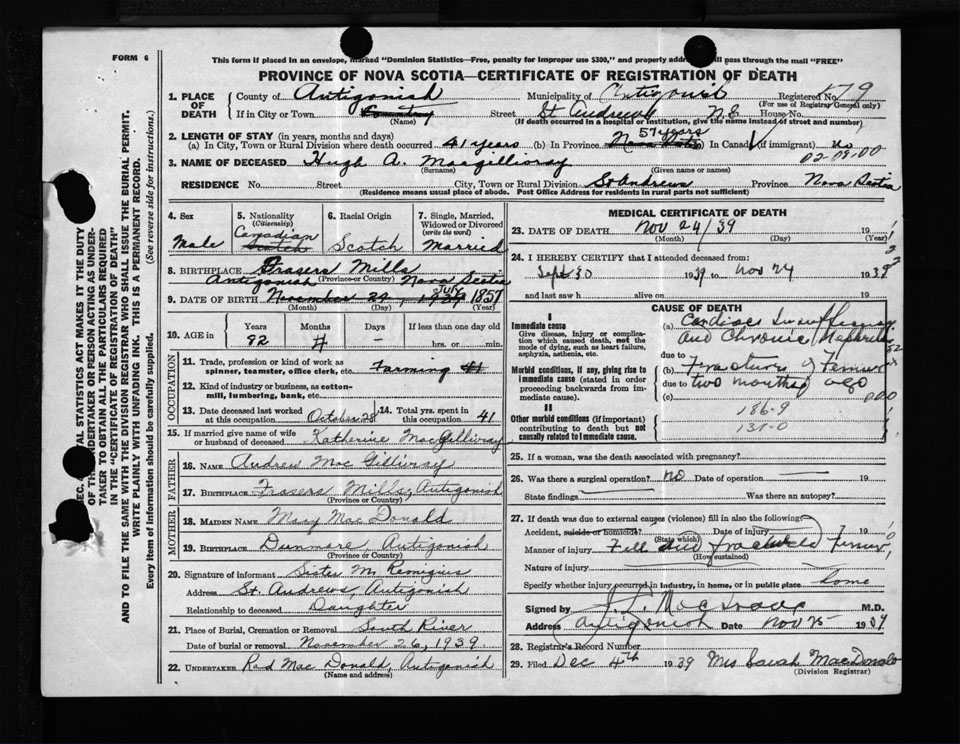 FORM 6
This form if placed in an envelope, marked "Dominion Statistics—Free, penalty for improper use $300," and properly addr will pass through the mail "FREE"
PROVINCE OF NOVA SCOTIA—CERTIFICATE OF REGISTRATION OF DEATH
1. PLACE OF DEATH County of Antigonish Municipality of Antigonish Registered No. 79
(For use of Registrar General only)
If in City or Town Country Street St Andrews N.S House No.
(Name) (If death occurred in a hospital or institution, give the name instead of street and number)
2. LENGTH OF STAY (in years, months and days) 57 years
(a) In City, Town or Rural Division where death occurred 41 years (b) In Province Nova Scotia (c) In Canada (if immigrant) no
02-09-00
3. NAME OF DECEASED Hugh A. Macgillivray
(Surname) (Given name or names)
RESIDENCE No. Street City, Town or Rural Division St Andrews Province Nova Scotia
(Residence means usual place of abode. Post Office Address for residents in rural parts not sufficient)
4. Sex 5. Nationality (Citizenship) 6. Racial Origin 7. Single, Married, Widowed or Divorced (write the word)
Male Canadian Scotch Scotch Married
8. BIRTHPLACE Frasers Mills
Antigonish Nova Scotia
(Province or Country)
9. DATE OF BIRTH November 24, 1939 July 1857
(Month) (Day) (Year)
10. AGE in Years Months Days If less than one day old
82 4 — hrs. or min.
OCCUPATION
11. Trade, profession or kind of work as spinner, teamster, office clerk, etc. Farming
12. Kind of industry or business, as cotton-mill, lumbering, bank, etc.
13. Date deceased last worked at this occupation October 28 14. Total yrs. spent in this occupation 41
15. If married give name of wife or husband of deceased Katherine MacGillivray
FATHER
16. NAME Andrew Mac Gillivray
17. BIRTHPLACE Frasers Mills, Antigonish
(Province or Country)
MOTHER
18. MAIDEN NAME Mary Mac Donald
19. BIRTHPLACE Dunmore, Antigonish
(Province or Country)
20. Signature of informant Sister M. Remigius
Address St. Andrews, Antigonish
Relationship to deceased Daughter
21. Place of Burial, Cremation or Removal South River
Date of burial or removal November 26, 1939.
22. UNDERTAKER Rod Mac Donald, Antigonish
(Name and address)
MEDICAL CERTIFICATE OF DEATH
23. DATE OF DEATH Nov 24/39 19
(Month) (Day) (Year)
24. I HEREBY CERTIFY that I attended deceased from:
Sept 30 1939 to Nov 24 1939
and last saw h alive on 19
CAUSE OF DEATH
I
Immediate cause
Give disease, injury or complication which caused death, not the mode of dying, such as heart failure, asphyxia, asthenia, etc.
(a) Cardiac Insufficiency
and Chronic Nephritis
due to
Morbid conditions, if any, giving rise to immediate cause (stated in order proceeding backwards from immediate cause).
(b) Fracture of Femur
due to two months ago
(c)
000
II
Other morbid conditions (if important) contributing to death but not causally related to immediate cause.
186.9
131-0
25. If a woman, was the death associated with pregnancy?
26. Was there a surgical operation? no Date of operation 19
State findings Was there an autopsy?
27. If death was due to external causes (violence) fill in also the following:
Accident, suicide or homicide? Date of injury 19
(State which)
Manner of injury Fell and fractured Femur
(How sustained)
Nature of injury
Specify whether injury occurred in industry, in home, or in public place home
Signed by M.D.
Address Antigonish Date Nov 25 1939
28. Registrar's Record Number
29. Filed Dec 4th 1939 Mrs Sarah MacDonald
(Division Registrar)
AL STATISTICS ACT MAKES IT THE DUTY
OF THE UNDERTAKER OR PERSON ACTING AS UNDER-
TAKER TO OBTAIN ALL THE PARTICULARS REQUIRED
IN THE "CERTIFICATE OF REGISTRATION OF DEATH"
AND TO FILE THE SAME WITH THE DIVISION REGISTRAR WHO SHALL ISSUE THE BURIAL PERMIT.
WRITE PLAINLY WITH UNFADING INK. THIS IS A PERMANENT RECORD.
Every item of information should be carefully supplied. (See reverse side for instructions.)